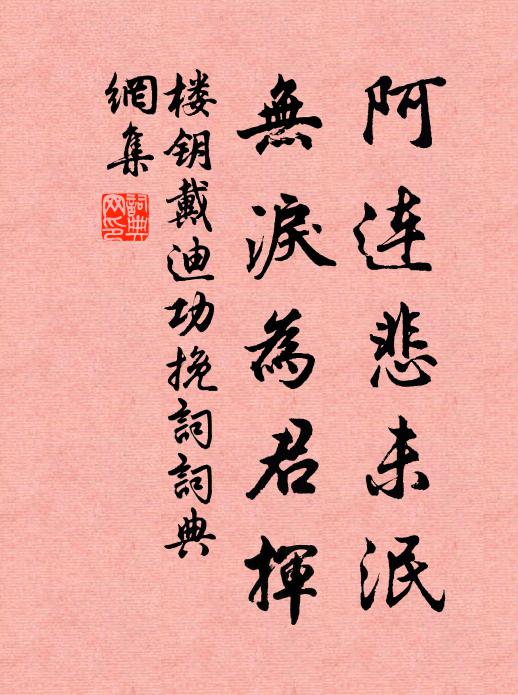 阿連悲未泯
無淚為君揮
楼钥戴迪功挽詞詞典
網集
詞典網印